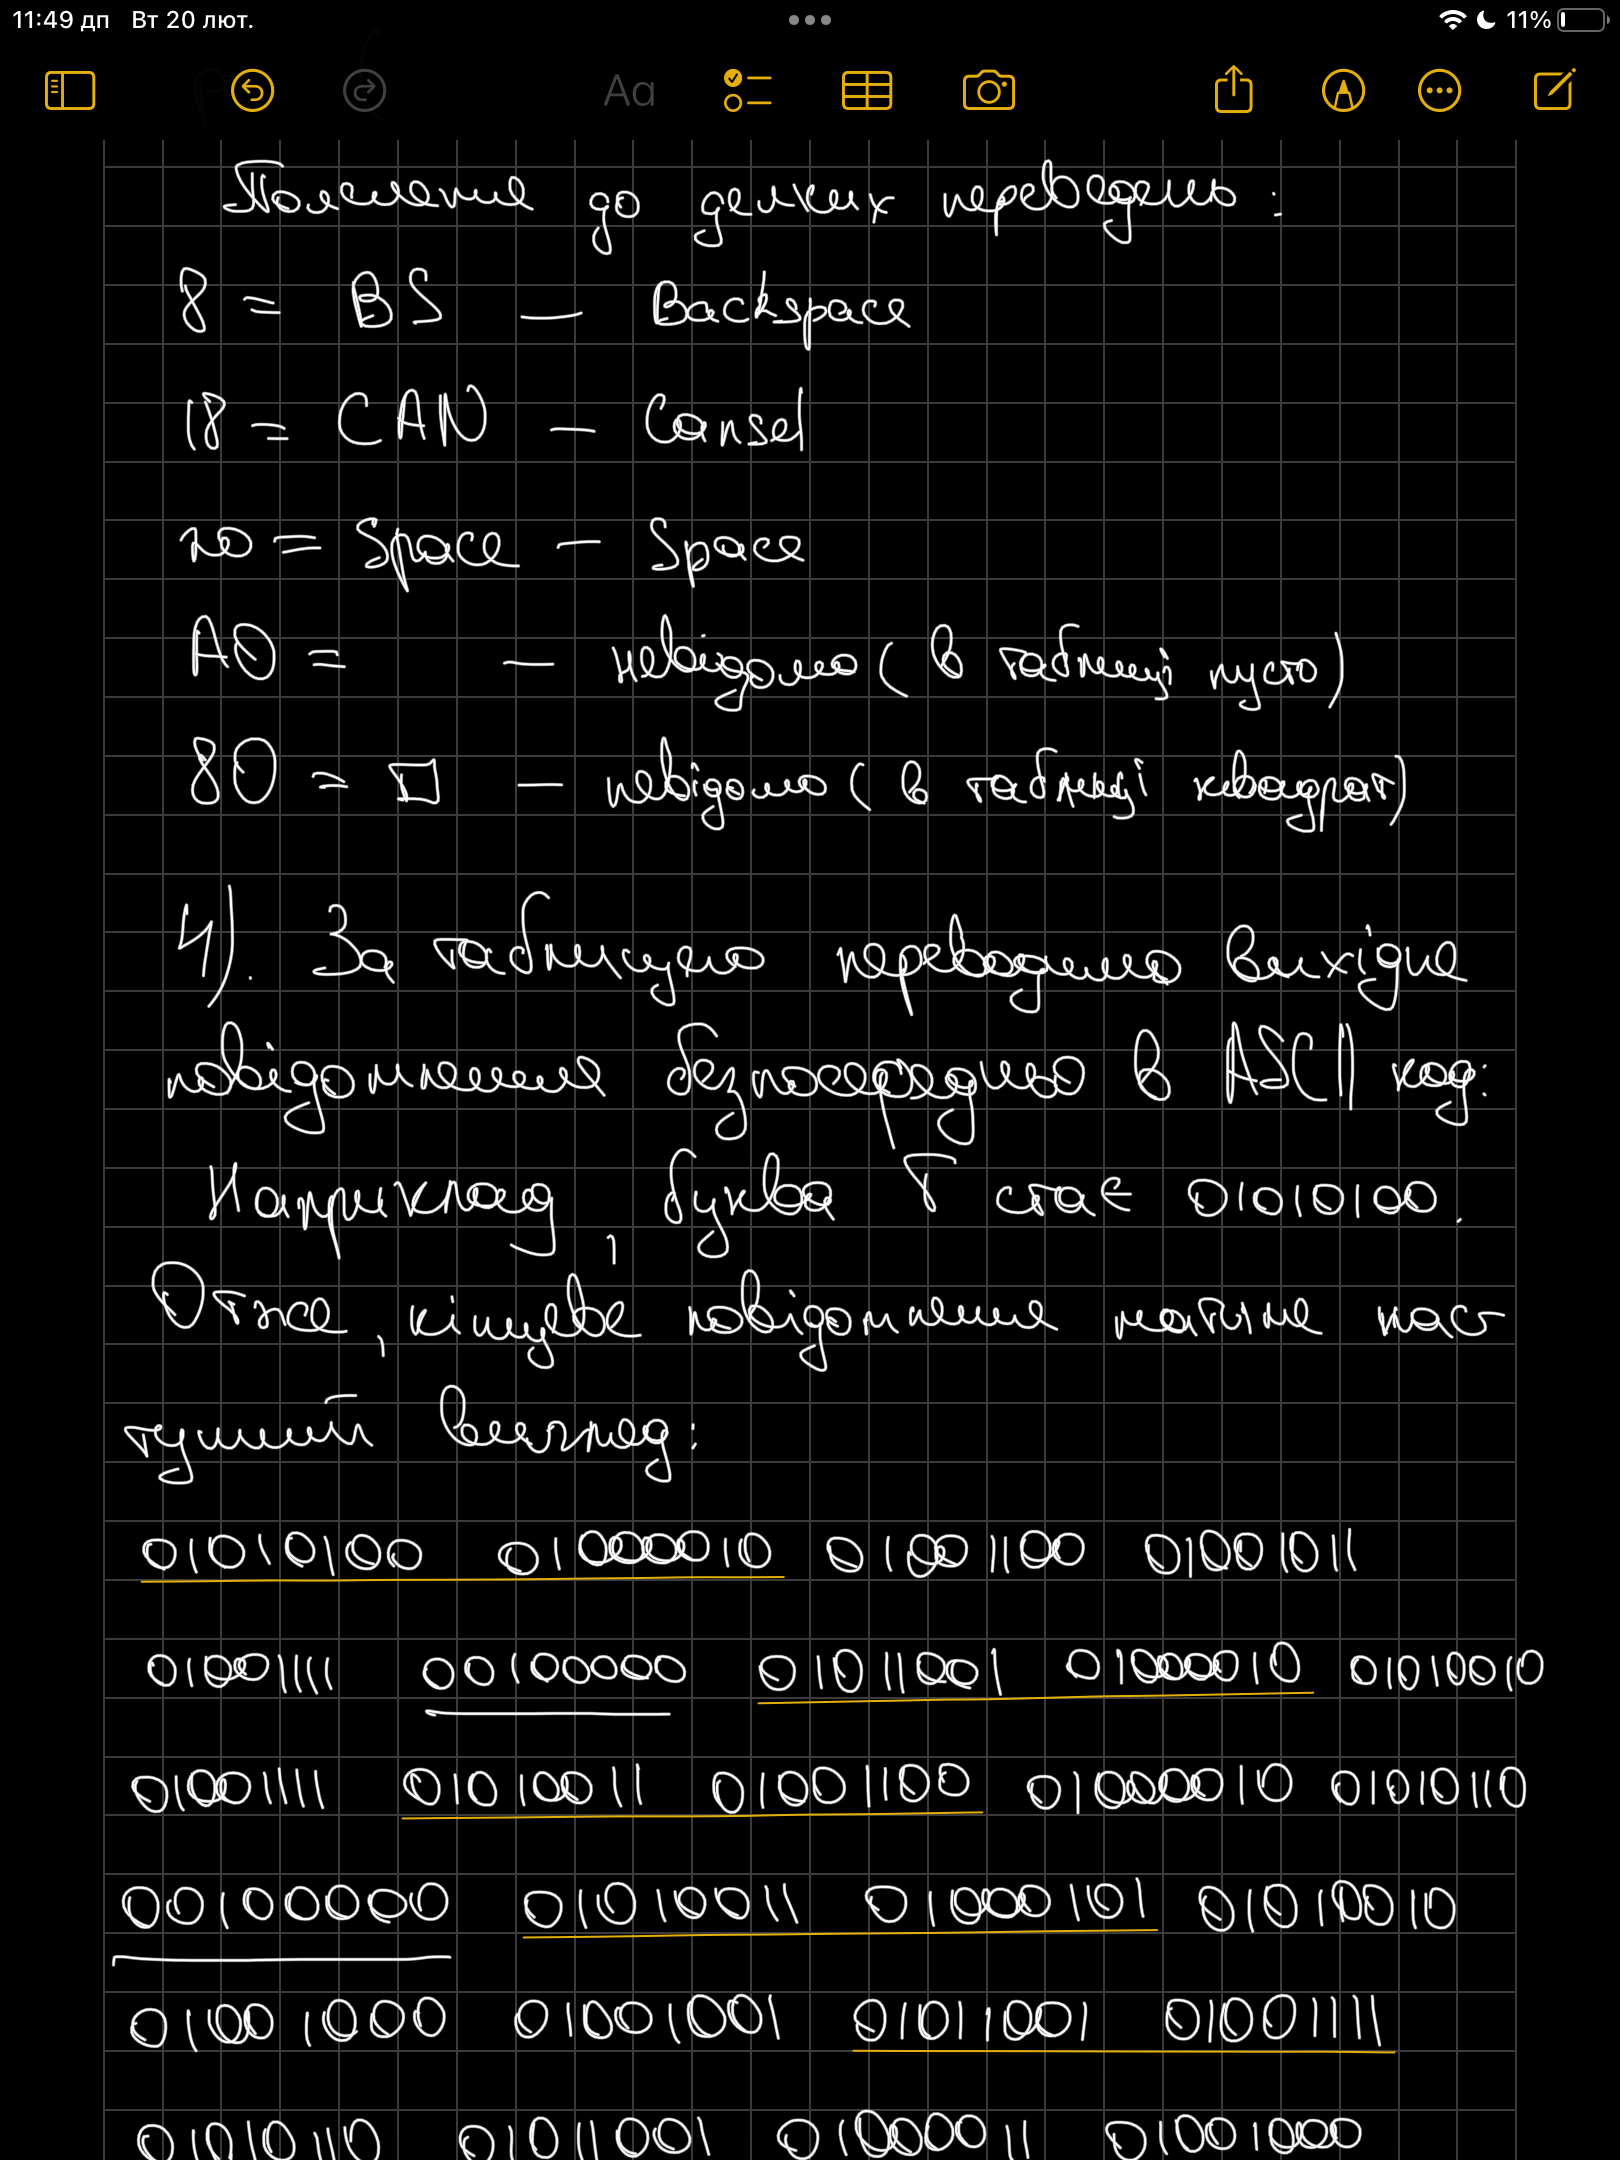 11:49 дп Вт 20 лют.
11%
Aa
Пояснення до деяких переведень:
8 = BS — Backspace
18 = CAN — Cansel
20 = Space — Space
A0 = — невідомо (в таблиці пусто)
80 = □ — невідомо (в таблиці квадрат)
4). За таблицею переводимо вихідне
повідомлення безпосередньо в ASCII код:
Наприклад, буква T стає 01010100.
Отже, кінцеве повідомлення матиме нас-
тупний вигляд:
01010100 01000010 01001100 01001011
01001111 00100000 01011001 01000010 01010010
01001111 01010011 01001100 01000010 01010110
00100000 01010011 01000101 01010010
01001000 01001001 01011001 01001111
01010110 01011001 01000011 01001000